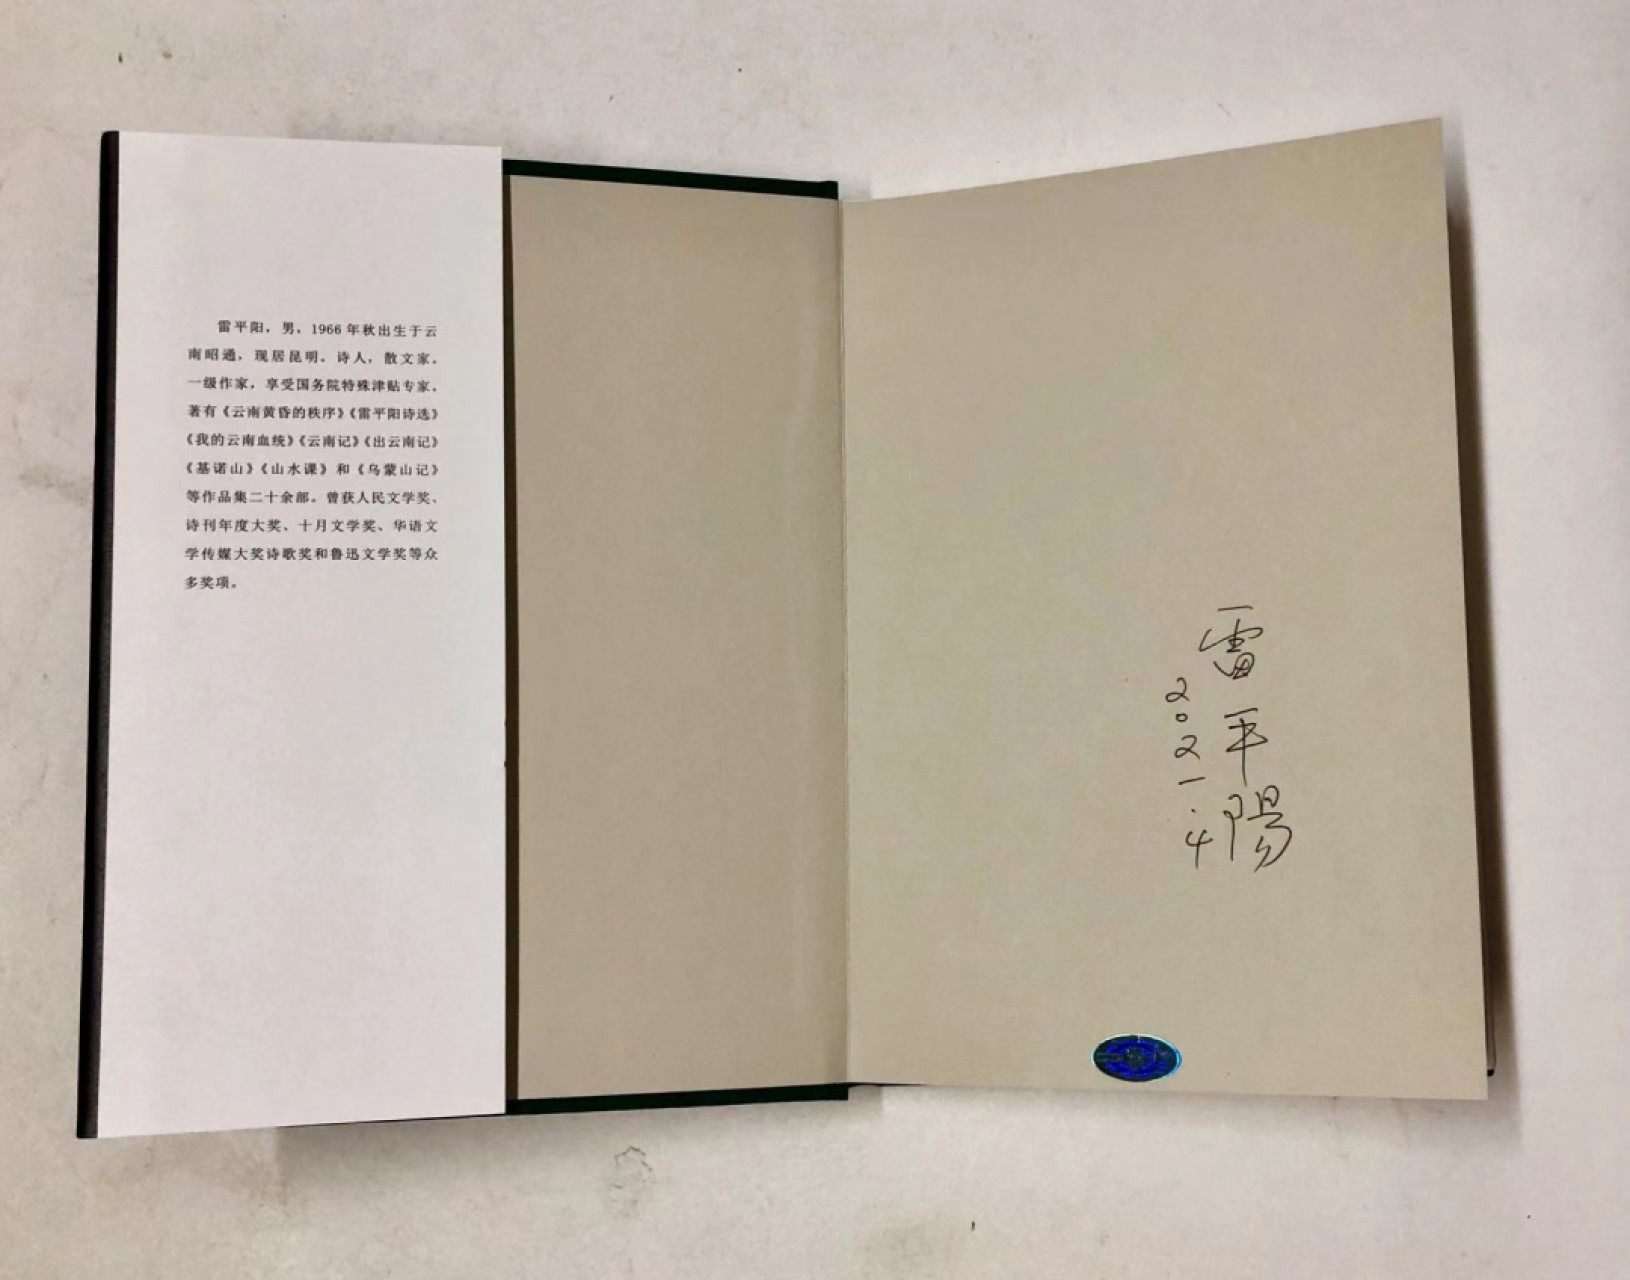 雷平阳，男，1966年秋出生于云
南昭通，现居昆明。诗人，散文家。
一级作家，享受国务院特殊津贴专家。
著有《云南黄昏的秩序》《雷平阳诗选》
《我的云南血统》《云南记》《出云南记》
《基诺山》《山水课》和《乌蒙山记》
等作品集二十余部。曾获人民文学奖、
诗刊年度大奖、十月文学奖、华语文
学传媒大奖诗歌奖和鲁迅文学奖等众
多奖项。
雷平陽
2021.4